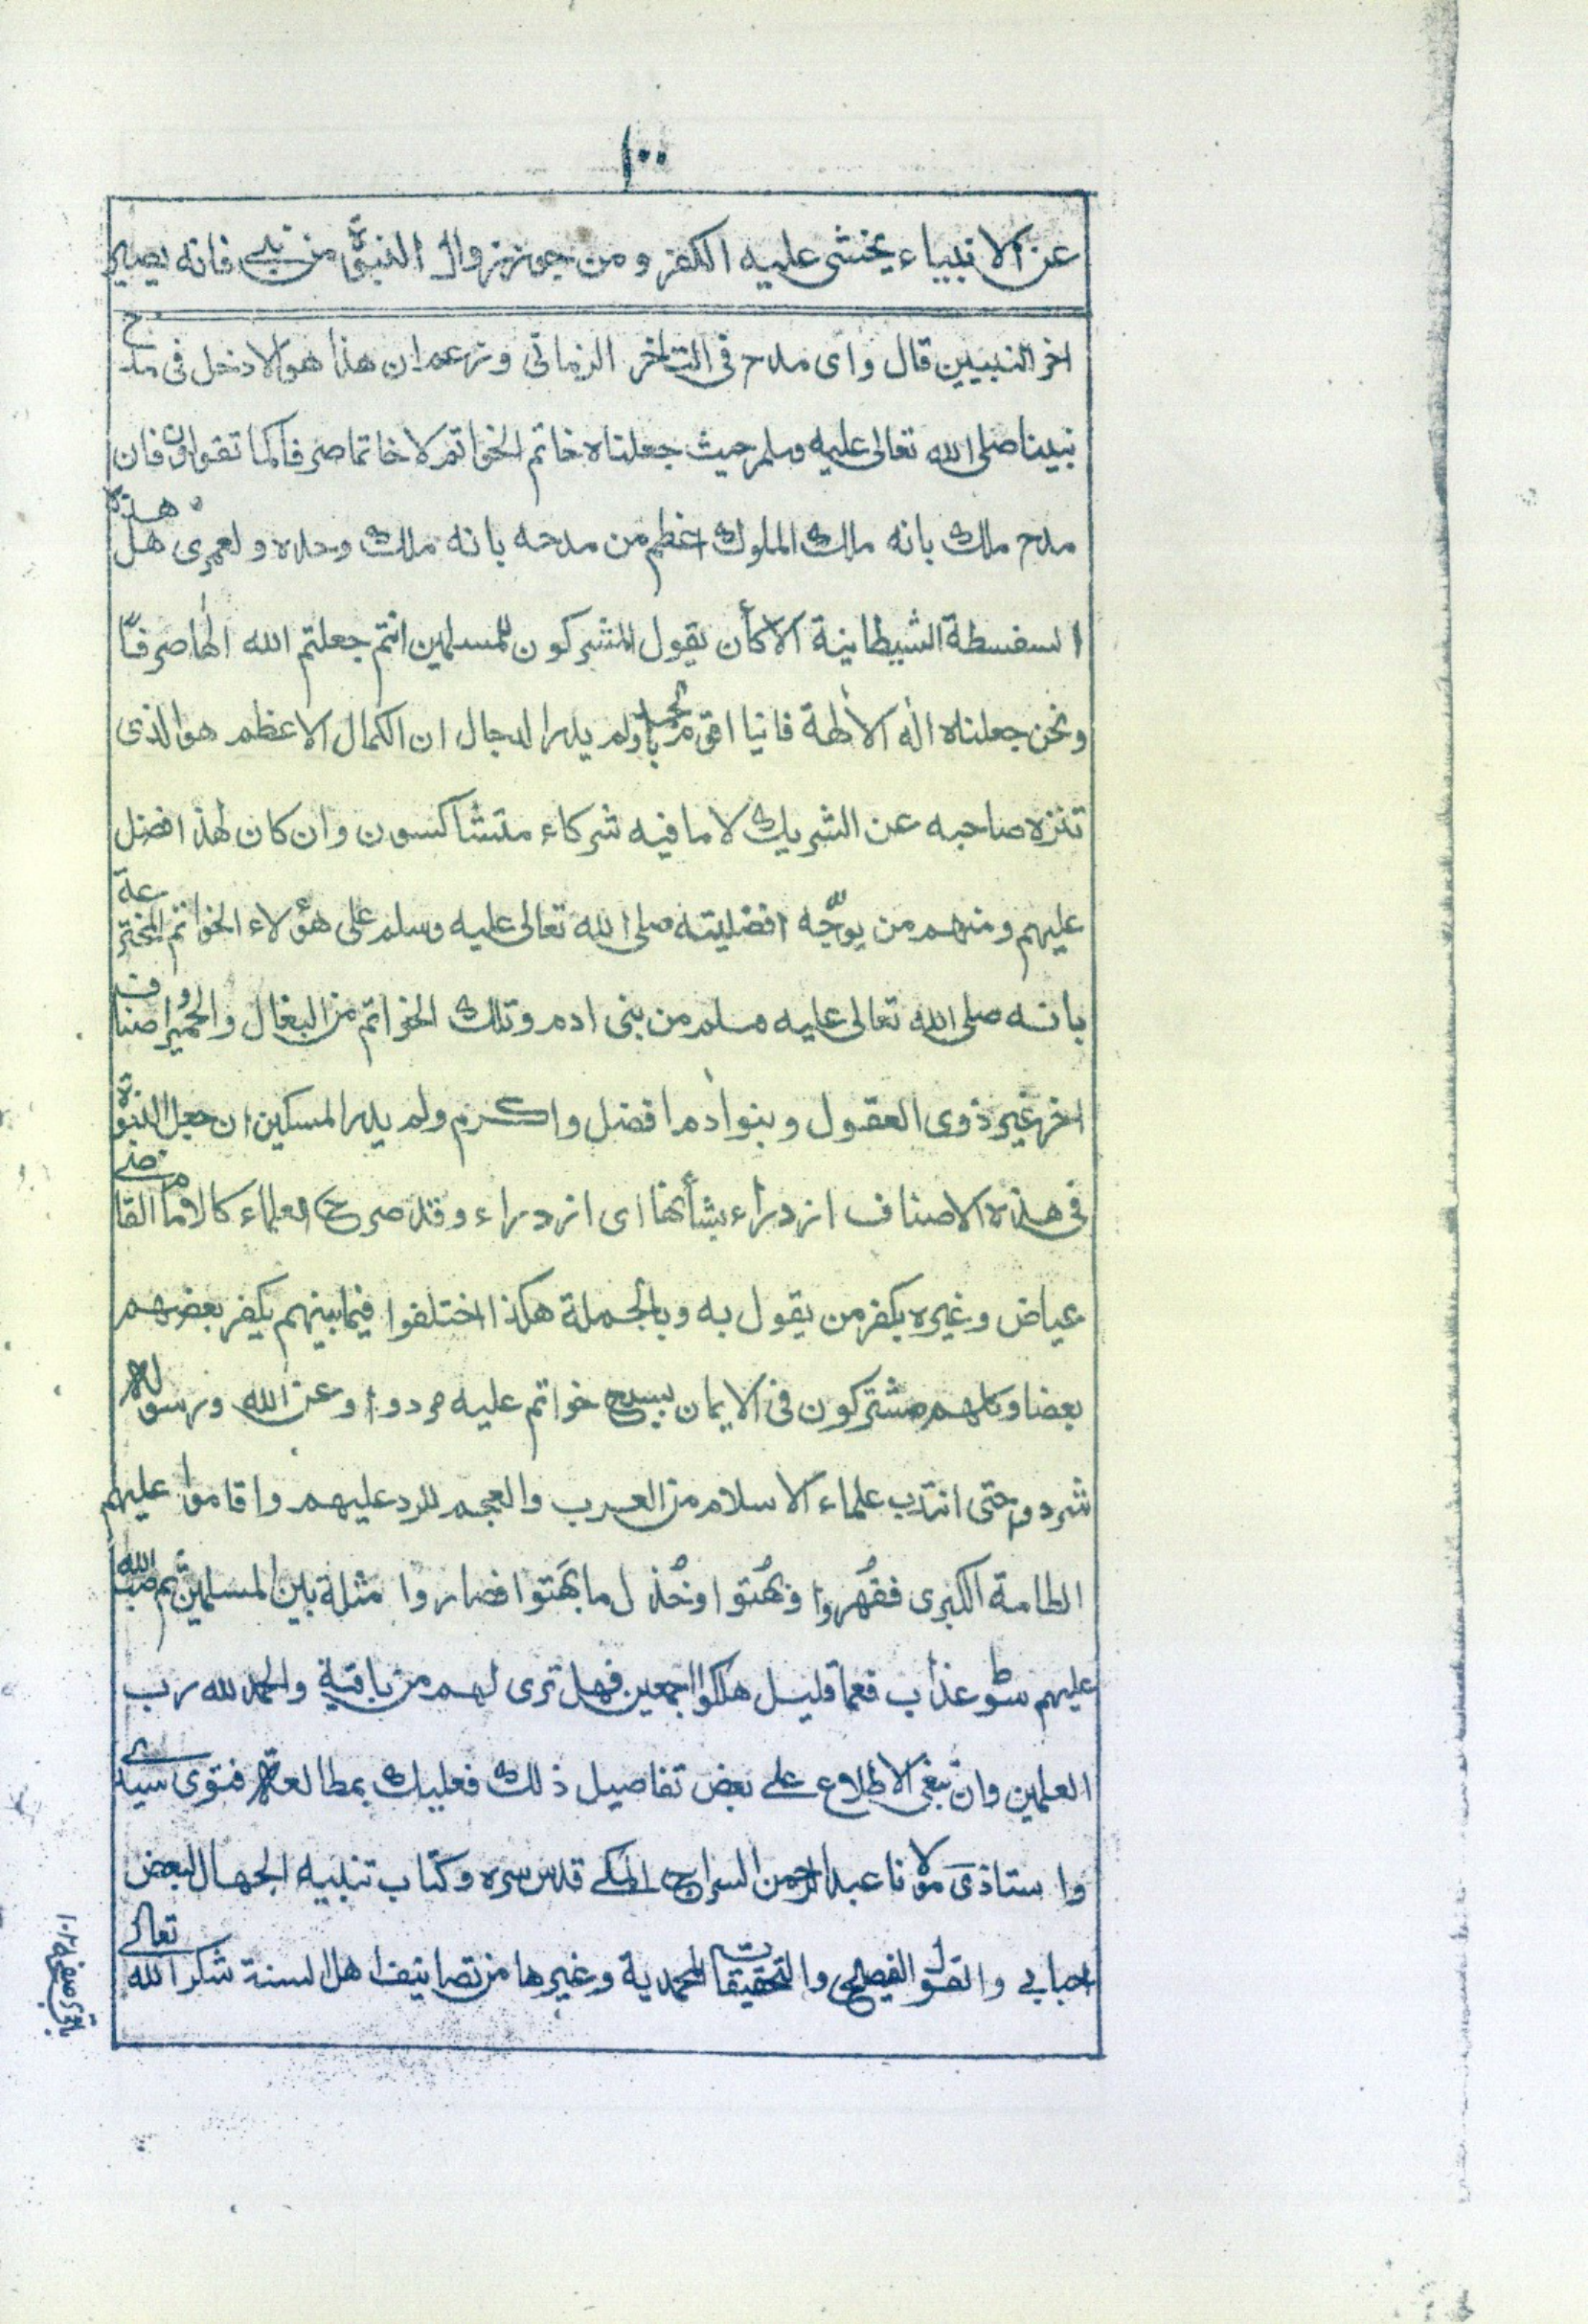 ١٠٠
عن الانبياء يخشى عليه الكفر ومن جوز زوال النبوة من نبي فانه يصير
اخر النبيين قال واى مدح فى التاخر الزمانى وزعم ان هذا هو الادخل فى مدح
نبينا صلى الله تعالى عليه وسلم حيث جعلناه خاتم الخواتم لا خاتما صرفا كما تقولون فان
مدح ملك بانه ملك الملوك اعظم من مدحه بانه ملك وحده ولعمرى هل هذه
السفسطة الشيطانية الا كأن يقول المشركون للمسلمين انتم جعلتم الله الٰها صرفا
ونحن جعلناه الٰه الاٰلهة فاينا اقوم حمدا ولم يدر الدجال ان الكمال الاعظم هو الذى
تنزه صاحبه عن الشريك لا ما فيه شركاء متشاكسون وان كان لهذا فضل
عليهم ومنهم من يوجّه افضليته صلى الله تعالى عليه وسلم على هؤلاء الخواتم المخترعة
بانه صلى الله تعالى عليه وسلم من بنى ادم وتلك الخواتم من البغال والحمير واصناف
اخر غير ذوى العقول وبنو اٰدم افضل واكرم ولم يدر المسكين ان جعل النبوة
فى هذه الاصناف ازدراء بشأنها اى ازدراء وقد صرح العلماء كالامام القاضى
عياض وغيره بكفر من يقول به وبالجملة هكذا اختلفوا فيما بينهم يكفر بعضهم
بعضا وكلهم مشتركون فى الايمان بسبع خواتم عليه مردوا وعن الله ورسوله
شردوا حتى انتدب علماء الاسلام من العرب والعجم للرد عليهم واقاموا عليهم
الطامة الكبرى فقُهروا وبُهتوا وخُذل ما بَهَتوا فصاروا مثلة بين المسلمين ثم صب الله
عليهم سوط عذاب فعما قليل هلكوا اجمعين فهل ترى لهم من باقية والحمد لله رب
العلمين وان تبغى الاطلاع على بعض تفاصيل ذلك فعليك بمطالعة فتوى سيدى
واستاذى مولانا عبد الرحمن السراج المكى قدس سره وكتاب تنبيه الجهال لبعض
احبابى والقول الفصيح والتحقيقات المحمدية وغيرها من تصانيف اهل السنة شكر الله تعالى